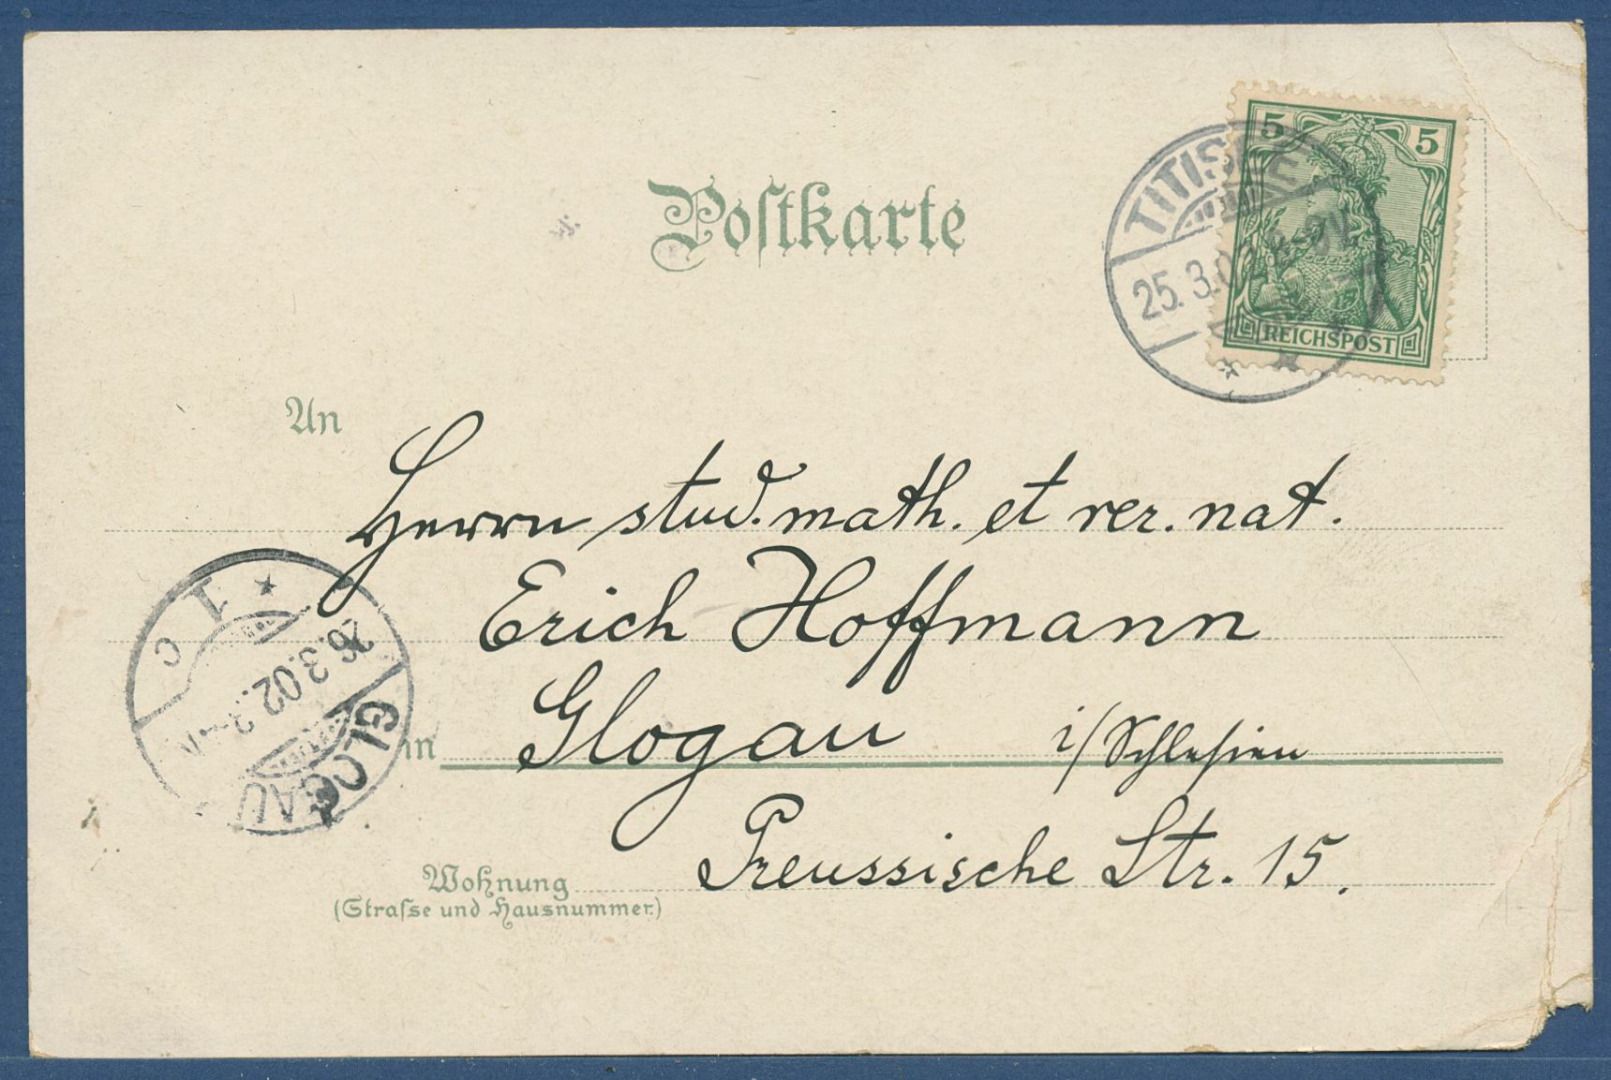 Postkarte
5 5
REICHSPOST
TITISEE
25. 3. 02
An
Herrn stud. math. et rer. nat.
Erich Hoffmann
in Glogau i/Schlesien
Preussische Str. 15.
Wohnung
(Strafse und Hausnummer.)
GLOGAU
26. 3. 02.
1 c